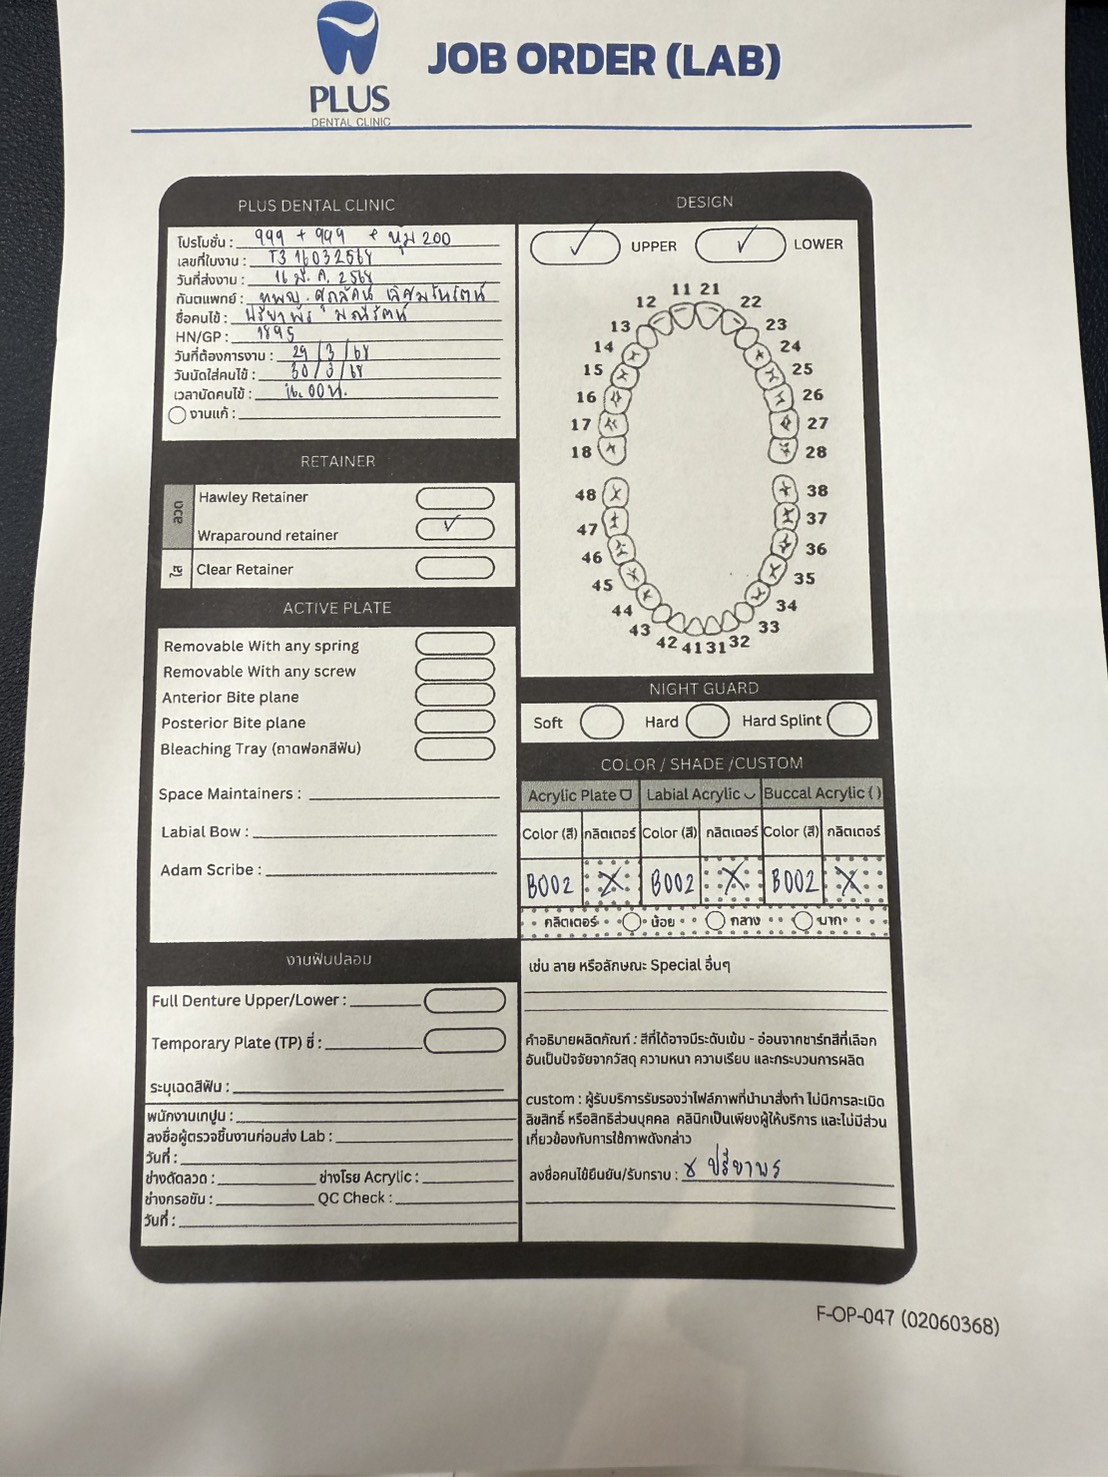 PLUS
DENTAL CLINIC
JOB ORDER (LAB)
PLUS DENTAL CLINIC
โปรโมชั่น : 999 + 999 + หุ้ม 200
เลขที่ใบงาน : T3 16032568
วันที่ส่งงาน : 16 มี.ค. 2568
ทันตแพทย์ : ทพญ.
ชื่อคนไข้ : ปรียาพร มณีรัตน์
HN/GP : 1895
วันที่ต้องการงาน : 29 / 3 / 68
วันนัดใส่คนไข้ : 30 / 3 / 68
เวลานัดคนไข้ : 16.00 น.
งานแก้ :
RETAINER
ลวด
Hawley Retainer
Wraparound retainer ✓
ใส
Clear Retainer
ACTIVE PLATE
Removable With any spring
Removable With any screw
Anterior Bite plane
Posterior Bite plane
Bleaching Tray (ถาดฟอกสีฟัน)
Space Maintainers :
Labial Bow :
Adam Scribe :
งานฟันปลอม
Full Denture Upper/Lower :
Temporary Plate (TP) ซี่ :
ระบุเฉดสีฟัน :
พนักงานเทปูน :
ลงชื่อผู้ตรวจชิ้นงานก่อนส่ง Lab :
วันที่ :
ช่างดัดลวด : ช่างโรย Acrylic :
ช่างกรอขัน : QC Check :
วันที่ :
DESIGN
✓ UPPER ✓ LOWER
11 21
12 22
13 23
14 24
15 25
16 26
17 27
18 28
48 38
47 37
46 36
45 35
44 34
43 33
42 41 31 32
NIGHT GUARD
Soft Hard Hard Splint
COLOR / SHADE /CUSTOM
Acrylic Plate Labial Acrylic Buccal Acrylic ( )
Color (สี) กลิตเตอร์ Color (สี) กลิตเตอร์ Color (สี) กลิตเตอร์
B002 X B002 X B002 X
กลิตเตอร์ น้อย กลาง มาก
เช่น ลาย หรือลักษณะ Special อื่นๆ
คำอธิบายผลิตภัณฑ์ : สีที่ได้อาจมีระดับเข้ม - อ่อนจากชาร์ทสีที่เลือก
อันเป็นปัจจัยจากวัสดุ ความหนา ความเรียบ และกระบวนการผลิต
custom : ผู้รับบริการรับรองว่าไฟล์ภาพที่นำมาสั่งทำ ไม่มีการละเมิด
ลิขสิทธิ์ หรือสิทธิส่วนบุคคล คลินิกเป็นเพียงผู้ให้บริการ และไม่มีส่วน
เกี่ยวข้องกับการใช้ภาพดังกล่าว
ลงชื่อคนไข้ยืนยัน/รับทราบ : x ปรียาพร
F-OP-047 (02060368)